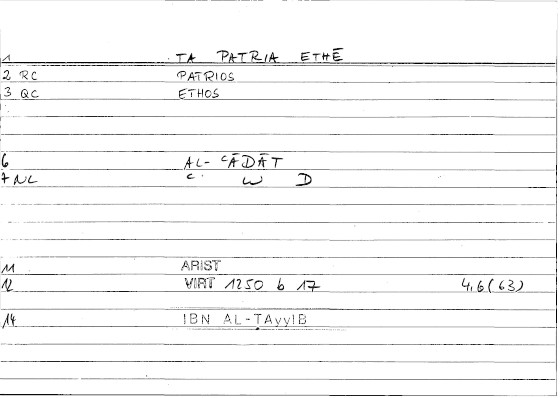 1 TA PATRIA ETHĒ
2 RC PATRIOS
3 QC ETHOS
6 AL- ʿĀDĀT
7 NL ʿ W D
11 ARIST
12 VIRT 1250 b 17 4,6(63)
14 IBN AL-ṬAyyIB